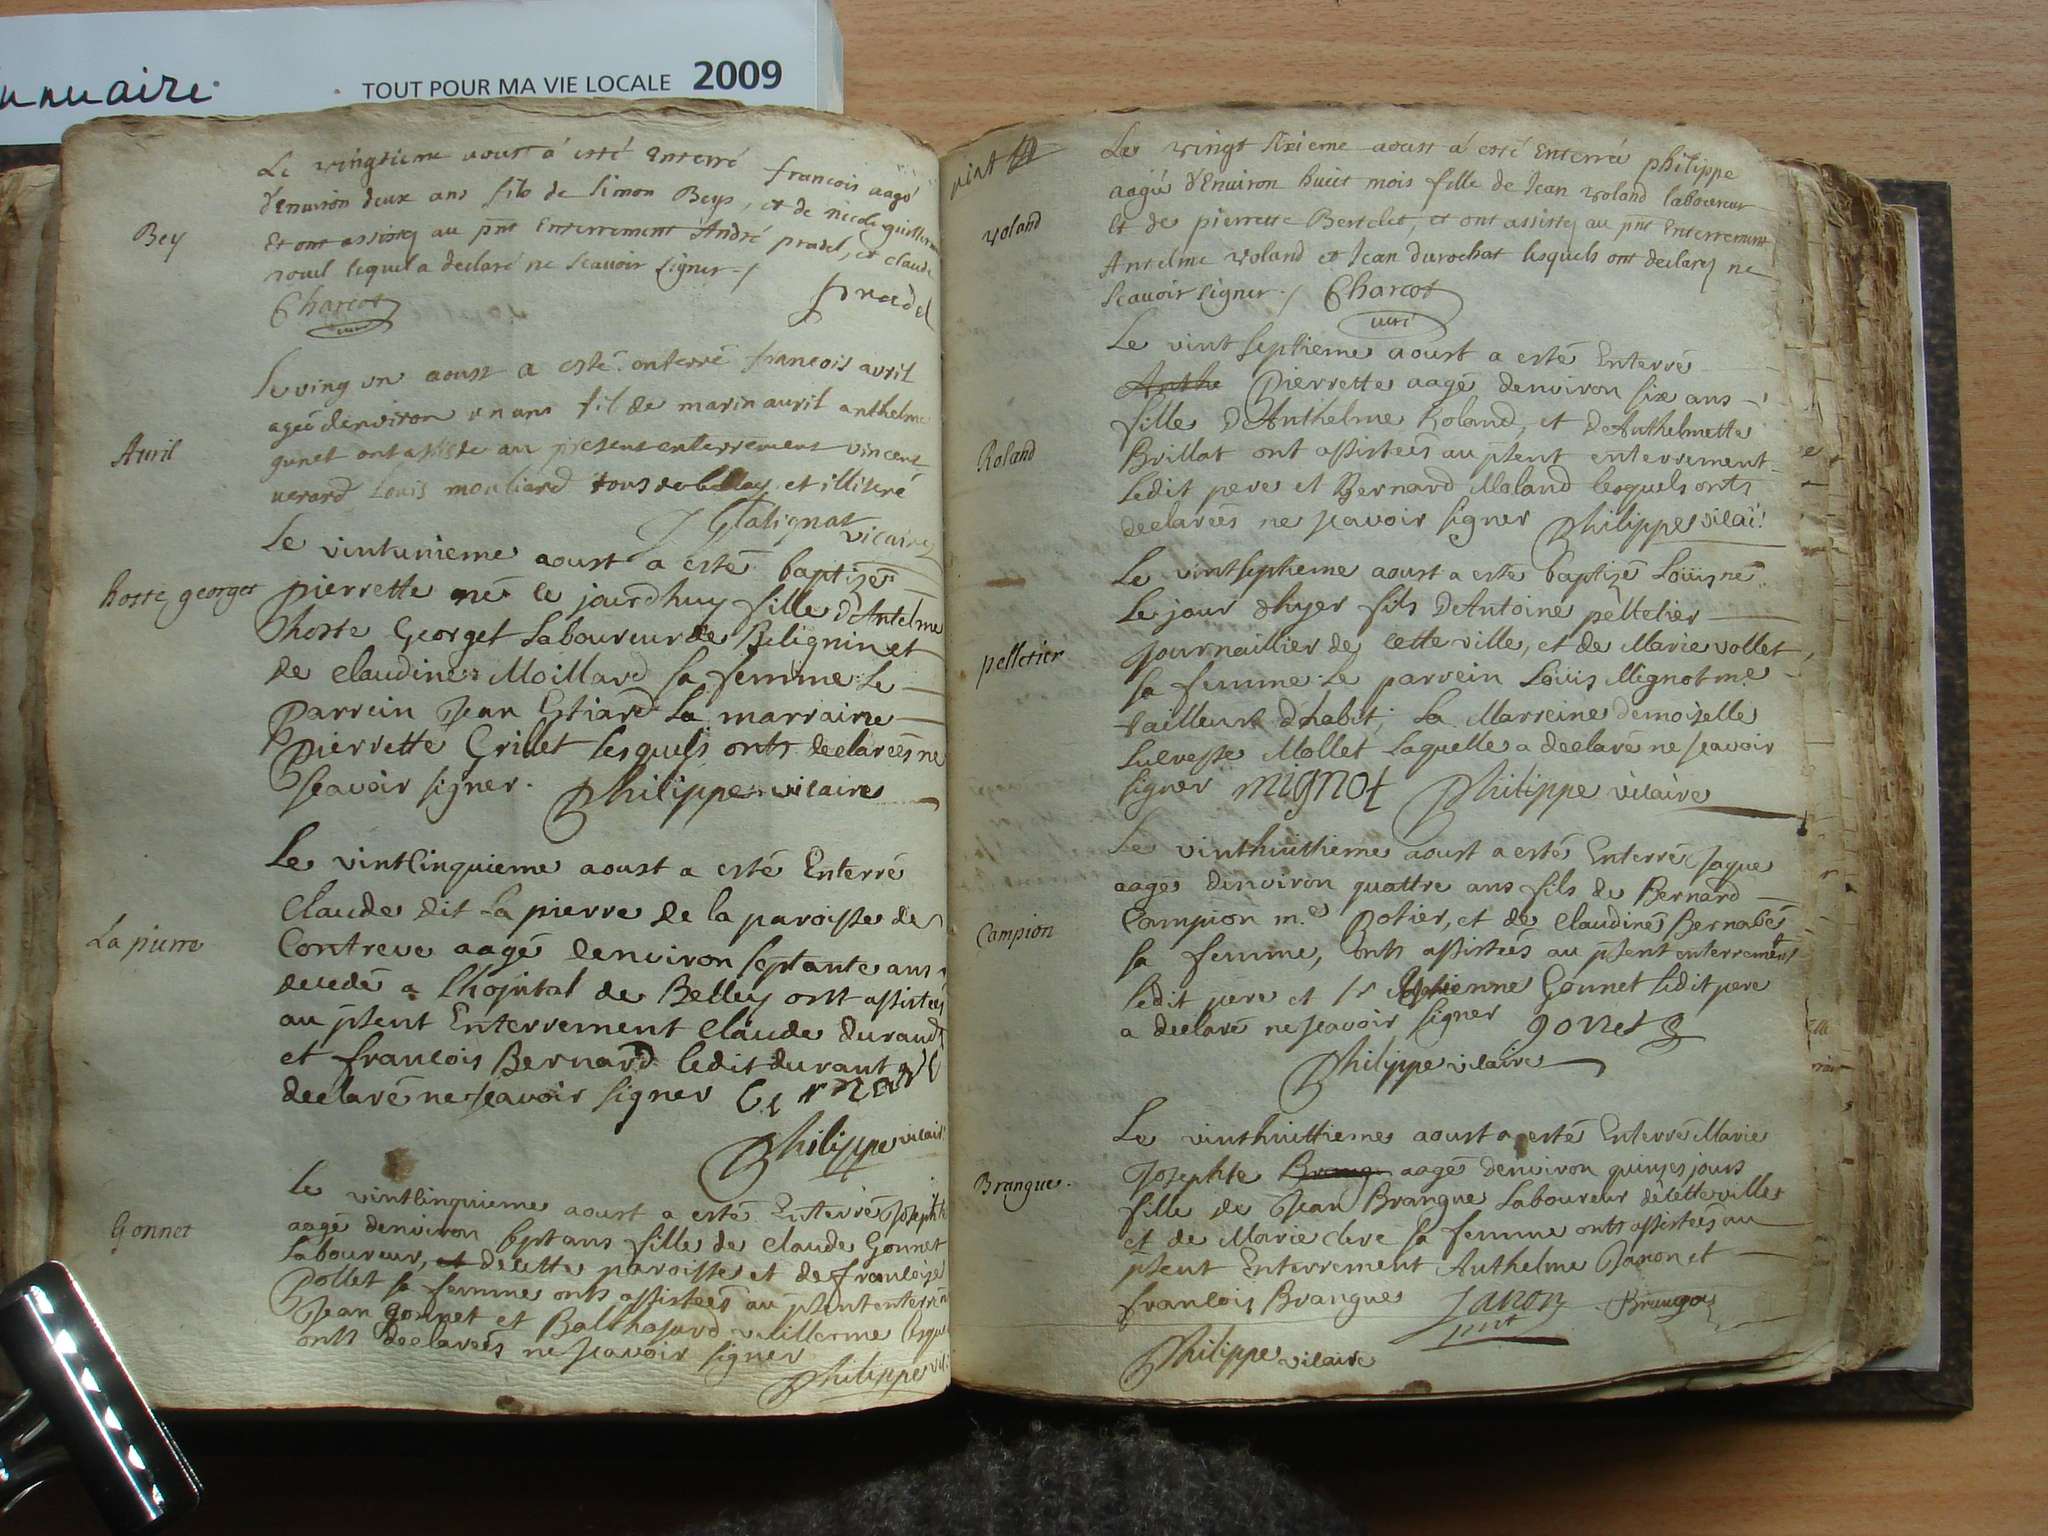 nnuaire
TOUT POUR MA VIE LOCALE 2009
Le vingtieme aoust a esté Enterré francois aagé
d'Environ deux ans fils de Simon Beys, et de nicole
Et ont assistez au pnt Enterrement André pradel, et claude
lequel a declaré ne scavoir signer
Charcot pradel
curé
Bey
le ving un aoust a esté enterré francois avril
ageé denviron un ans fil de marin auril anthelme
gunet ont assiste au present enterrement vincent
uerard Louis mouliard tous de belley et illiteré
Auril
Talignat
vicaire
Le vintunieme aoust a esté baptizé
hoste georget
pierrette né ce jourdhuy fille D'Antelme
hoste Georget Laboureur de Belignin et
de Claudine Moillard sa femme Le
Parrein Jean Estiard La marraine
Pierrette Grillet lesquels onts declareés ne
scavoir signer. Philippe vicaire
Le vintcinquieme aoust a esté Enterré
Claude dit La pierre de la paroisse de
La pierre
Contreve aagé denviron septante ans
decedé a l'hopital de Belley ont assisteés
au psent Enterrement Claude durand
et francois Bernard ledit durant a
declaré ne scavoir signer bernard
Philippe vicair
Le vintcinquieme aoust a esté Enterré Josephte
Gonnet
aagé denviron sept ans fille de Claude Gonnet
Laboureur, et decette paroisse et de francoise
Pollet sa femme onts assisteés au psent enterrem
Jean gonnet et Balthasard vuillerme lesque
onts declareés ne scavoir signer
Philippe vi
vint
Le vingt sixieme aoust a esté Enterreé philippe
aagée d'Environ huict mois fille de Jean voland laboureur
voland
Et de pierrette Bertelet, et ont assistez au pnt Enterrement
Antelme voland et Jean durochat lesquels ont declarez ne
scavoir signer. Charcot
curé
Le vint septieme aoust a esté Enterré
Anthe Pierrette aagé denviron six ans
fille D'Anthelme Roland, et D'Anthelmette
Roland
Brillat ont assisteés au psent enterrement
Ledit pere et Bernard Moland lesquels onts
declareés ne scavoir signer Philippe vicai
Le vintseptieme aoust a esté baptizé Loüis né
Le jour d'hyer fils D'Antoine pelletier
pelletier
journaillier de cette ville, et de Marie vollet
sa femme Le parrein Loüis Mignot me
tailleur d'habit; La Marreine demoiselle
Mollet Laquelle a declaré ne scavoir
signer mignot Philippe vicaire
Le vinthuitieme aoust a esté Enterré Jaque
aagé denviron quattre ans fils de Bernard
Campion
Campion me Potier, et de Claudine Bernabé
sa femme, onts assisteés au psent enterrement
ledit pere et sr Gonnet ledit pere
a declaré ne scavoir signer gonet
Philippe vicaire
Le vinthuittieme aoust a esté Enterré Marie
Josephte Brang aagé denviron quinze jours
Brangue.
fille de Jean Brangue Laboureur de cette ville
et de Marie clere sa femme onts assisteés au
psent Enterrement Anthelme Janon et
francois Brangue Janon Brangou
Philippe vicaire